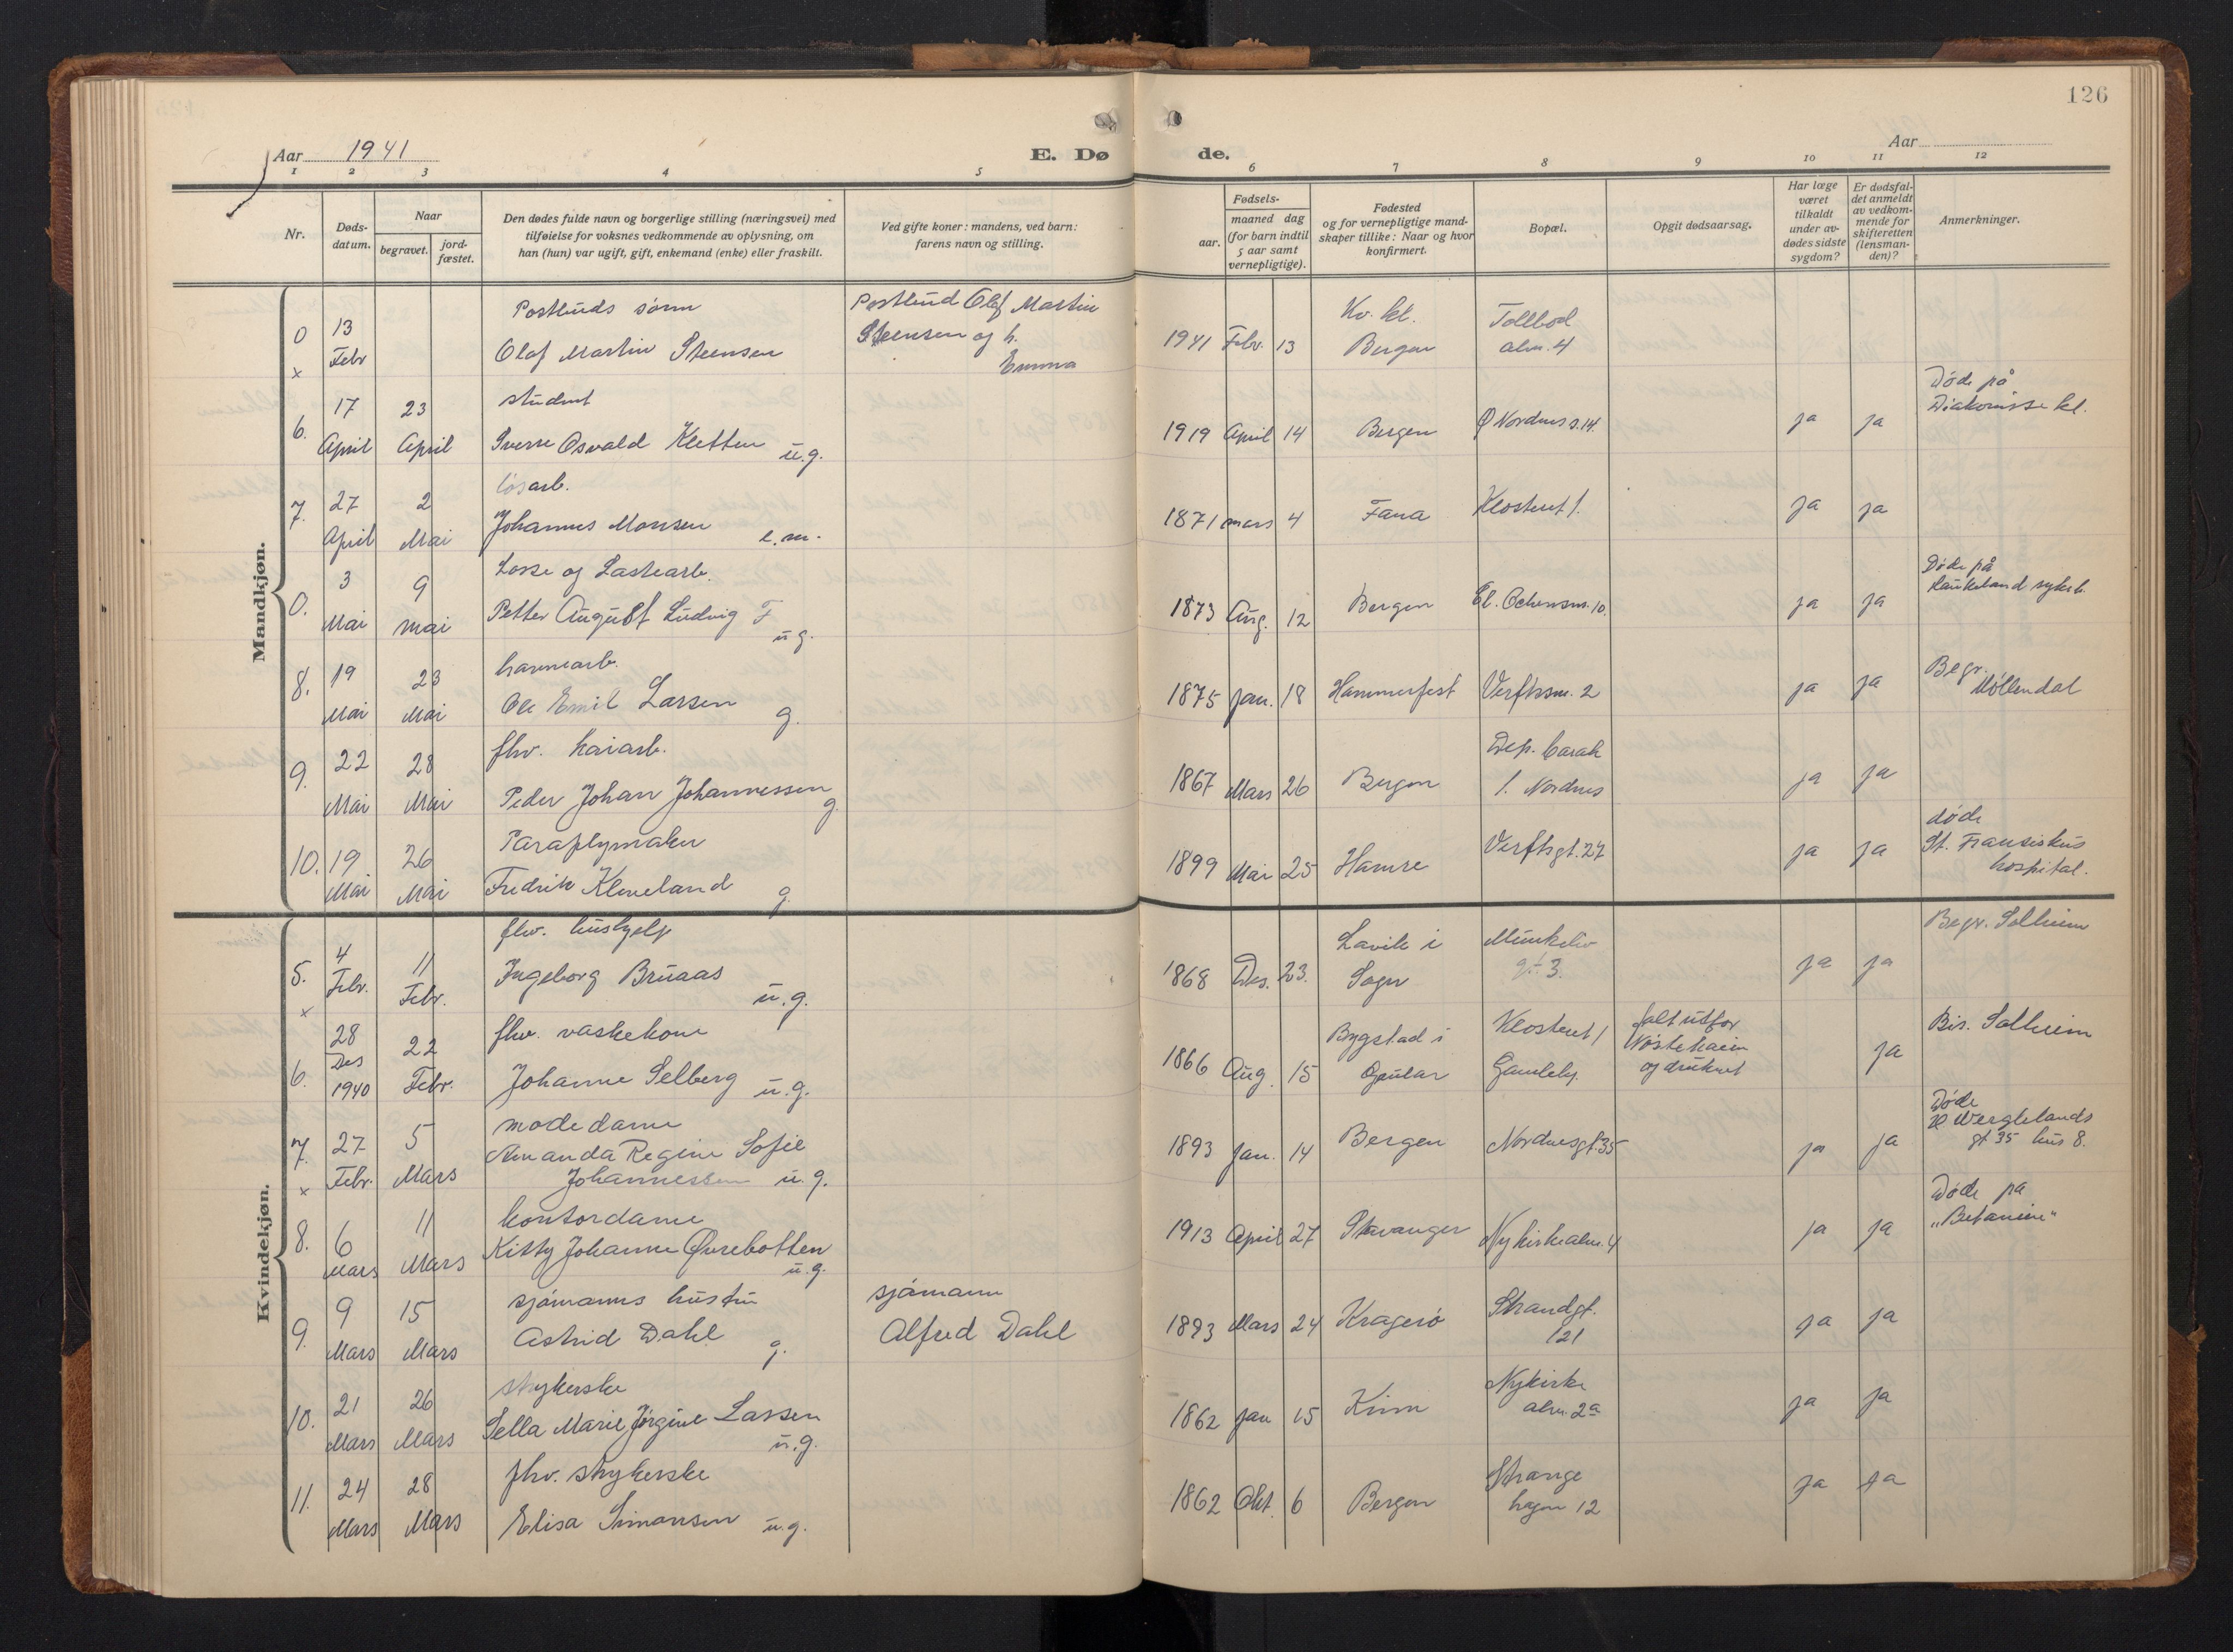 126
Aar 1941
E. Dø
de.
Aar
1 2 3 4 5 6 7 8 9 10 11 12
Nr.
Døds-
datum.
Naar
begravet.
jord-
fæstet.
Den dødes fulde navn og borgerlige stilling (næringsvei) med
tilføielse for voksnes vedkommende av oplysning, om
han (hun) var ugift, gift, enkemand (enke) eller fraskilt.
Ved gifte koner: mandens, ved barn:
farens navn og stilling.
Fødsels-
aar.
maaned dag
(for barn indtil
5 aar samt
vernepligtige).
Fødested
og for vernepligtige mand-
skaper tillike: Naar og hvor
konfirmert.
Bopæl.
Opgit dødsaarsag.
Har læge
været
tilkaldt
under av-
dødes sidste
sygdom?
Er dødsfal-
det anmeldt
av vedkom-
mende for
skifteretten
(lensman-
den)?
Anmerkninger.
Mandkjøn.
0 x 13 Febr
Postbuds sønn
Olaf Martin Steensen
Postbud Olaf Martin
Steensen og h.
Emma
1941 Febr. 13
Kv. kl.
Bergen
Tollbod
alm. 4
6. 17 April 23 April
student
Sverre Osvald Kletten u.g.
1919 April 14 Bergen Ø Nordnes s.14. ja ja
Døde på
Diakonisse kl.
7. 27 April 2 Mai
løsarb.
Johannes Monsen e.m.
1871 mars 4 Fana Klosteret 1. ja ja
0. 3 Mai 9 mai
Losse og Lastearb.
Petter August Ludvig F u g.
1873 Aug. 12 Bergen 10. ja ja
Døde på
Haukeland sykeh.
8. 19 Mai 23 Mai
havnearb.
Ole Emil Larsen g.
1875 Jan. 18 Hammerfest Verftssm. 2 ja ja
Begr.
Møllendal
9. 22 Mai 28 Mai
fhv. kaiarb.
Peder Johan Johannessen g.
1867 Mars 26 Bergen
Dep. barak
1. Nordnes
ja ja
10. 19 Mai 26 Mai
Paraplymaker
Fredrik Kleveland g.
1899 Mai 25 Hamre Verftsgt. 27 ja ja
døde
St. Fransiskus
hospital.
Kvindekjøn.
5. x 4 Febr. 11 Febr.
fhv. hushjelp
Ingeborg Bruaas u.g.
1868 Des. 23.
Lavik i
Sogn
Munkeliv
gt. 3.
ja ja
Begr. Solheim
6. 28 Des 1940 22 Febr.
fhv. vaskekone
Johanne Selberg u.g.
1866 Aug. 15
Bygstad i
Gaular
Klosteret 1
Gamleh.
falt utfor
Nøstekaien
og druknet
ja
Bis. Solheim
7. x 27 Febr. 5 Mars
modedame
Amanda Regine Sofie
Johannessen u.g.
1893 Jan. 14 Bergen Nordnesgt. 35 ja ja
Døde
H Wergelands
gt 35 hus 8.
8. 6 Mars 11 Mars
kontordame
Kitty Johanne Øvrebotten
u.g.
1913 April 27 Stavanger Nykirkealm. 4 ja ja
Døde på
„Betanien"
9. 9 Mars 15 Mars
sjømanns hustru
Astrid Dahl g.
sjømann
Alfred Dahl
1893 Mars 24 Kragerø
Strandgt.
121
ja ja
10. 21 Mars 26 Mars
strykerske
Sella Marie Jørgine Larsen
u.g.
1862 Jan 15 Kinn
Nykirke
alm. 2a
ja ja
11. 24 Mars 28 Mars
fhv. strykerske
Elisa Simonsen u.g.
1862 Okt. 6 Bergen
Strange
hagen 12
ja ja